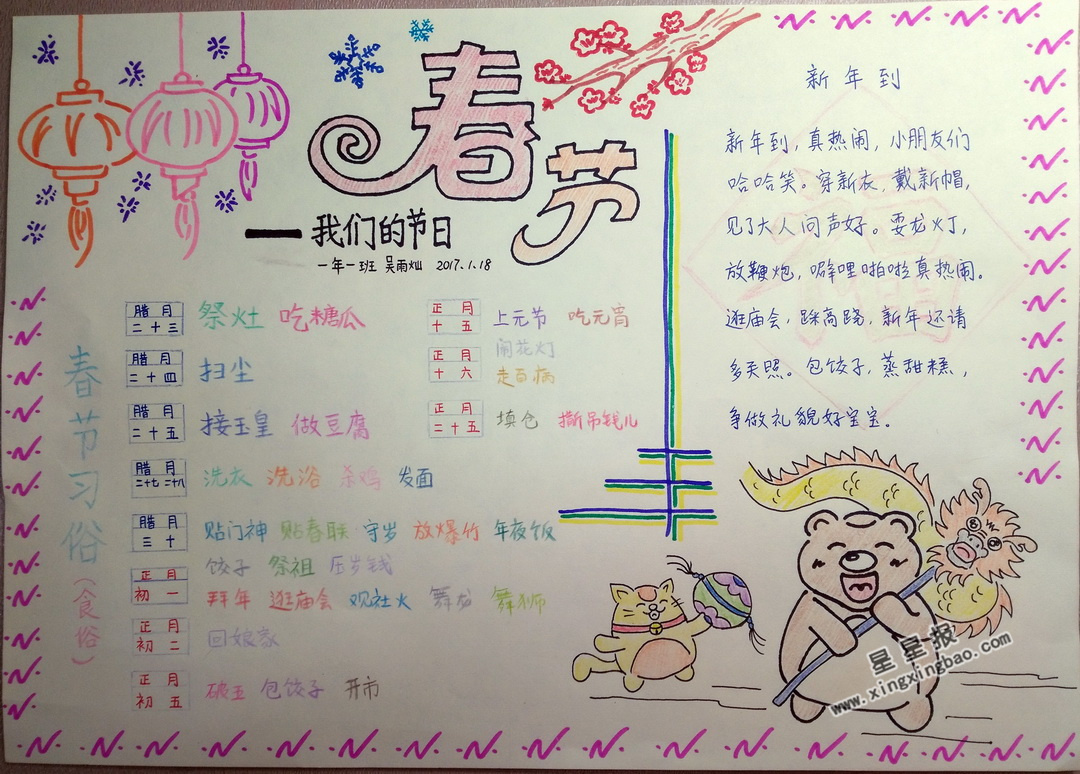 春节
一我们的节日
一年一班 吴雨灿 2017.1.18
春节习俗(食俗)
腊月二十三 祭灶 吃糖瓜
腊月二十四 扫尘
腊月二十五 接玉皇 做豆腐
腊月二十七 二十八 洗衣 洗浴 杀鸡 发面
腊月三十 贴门神 贴春联 守岁 放爆竹 年夜饭
饺子 祭祖 压岁钱
正月初一 拜年 逛庙会 观社火 舞龙 舞狮
正月初二 回娘家
正月初五 破五 包饺子 开市
正月十五 上元节 吃元宵
闹花灯
正月十六 走百病
正月二十五 填仓 撕吊钱儿
新年到
新年到,真热闹,小朋友们
哈哈笑。穿新衣,戴新帽,
见了大人问声好。耍龙灯,
放鞭炮,噼哩啪啦真热闹。
逛庙会,踩高跷,新年还请
多关照。包饺子,蒸甜糕,
争做礼貌好宝宝。
星星报
www.xingxingbao.com